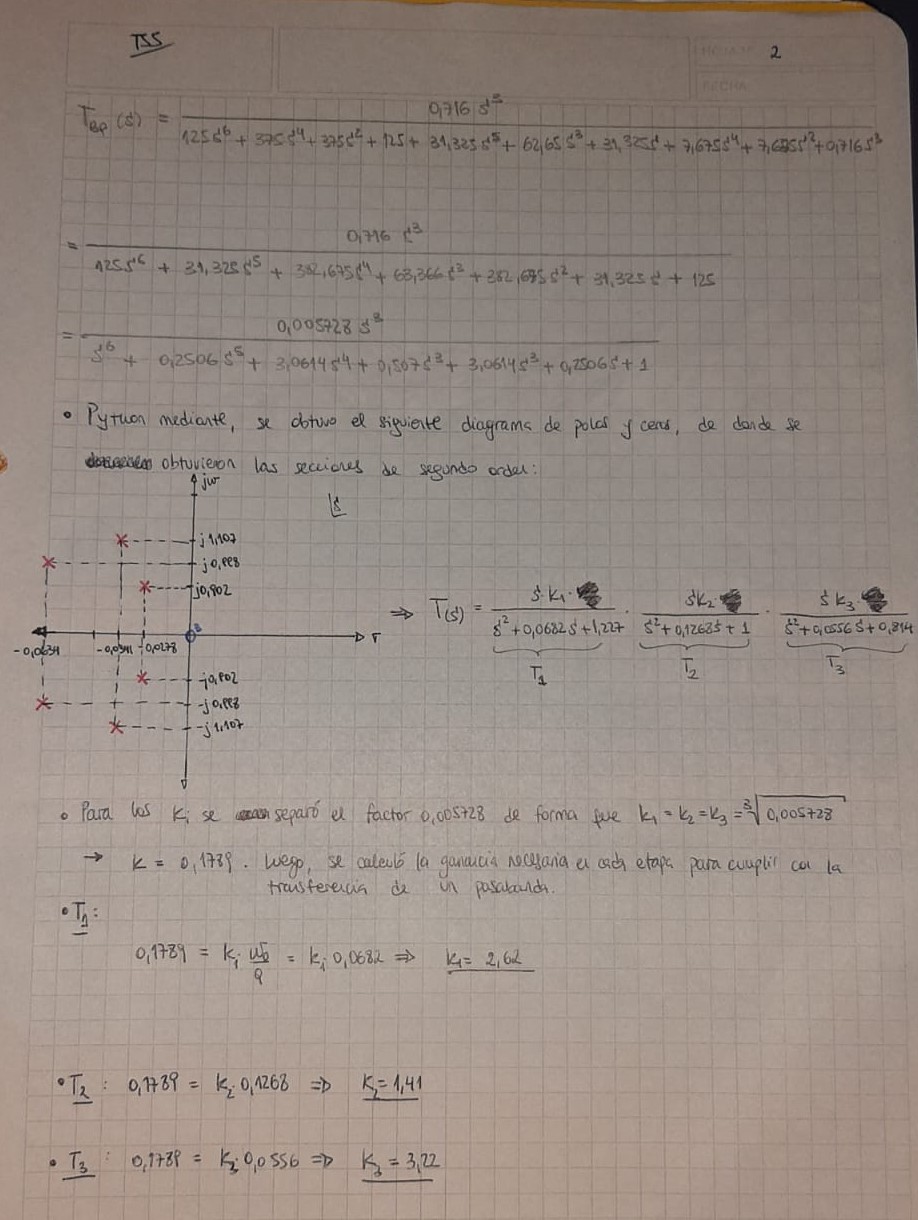 TSS
2
FECHA
T_BP(s) = 0,716 s³ / (125s⁶ + 375s⁴ + 375s² + 125 + 31,325s⁵ + 62,65s³ + 31,325s + 7,675s⁴ + 7,675s² + 0,716s³)
= 0,716 s³ / (125s⁶ + 31,325s⁵ + 382,675s⁴ + 63,366s³ + 382,675s² + 31,325s + 125)
= 0,005728 s³ / (s⁶ + 0,2506s⁵ + 3,0614s⁴ + 0,507s³ + 3,0614s³ + 0,2506s + 1)
• Pytuon mediante, se obtuvo el siguiente diagrama de polos y ceros, de donde se
obtuvieron las secciones de segundo orden:
jω
s
j1,107
j0,998
j0,902
3
σ
-0,0634 -0,0341 -0,0278
-j0,902
-j0,998
-j1,107
⇒ T(s) = s·k₁· / (s² + 0,0682s + 1,227) · sk₂· / (s² + 0,1268s + 1) · s k₃· / (s² + 0,0556s + 0,814)
T₁ T₂ T₃
• Para los Ki se separó el factor 0,005728 de forma que k₁ = k₂ = k₃ = ³√0,005728
→ K = 0,1789. Luego, se calculó la ganancia necesaria en cada etapa para cumplir con la
transferencia de un pasabanda.
• T₁:
0,1789 = k₁· ω₀/Q = k₁· 0,0682 ⇒ k₁ = 2,62
• T₂ : 0,1789 = k₂· 0,1268 ⇒ K₂ = 1,41
• T₃ : 0,1789 = k₃· 0,0556 ⇒ K₃ = 3,22